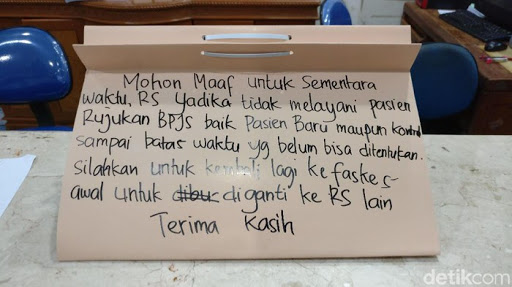 Mohon Maaf untuk Sementara
waktu, RS Yadika tidak melayani pasien
Rujukan BPJS baik Pasien Baru maupun kontrol
sampai batas waktu yg belum bisa ditentukan.
silahkan untuk kembali lagi ke faskes
awal untuk dibu diganti ke RS lain
Terima Kasih
detikcom